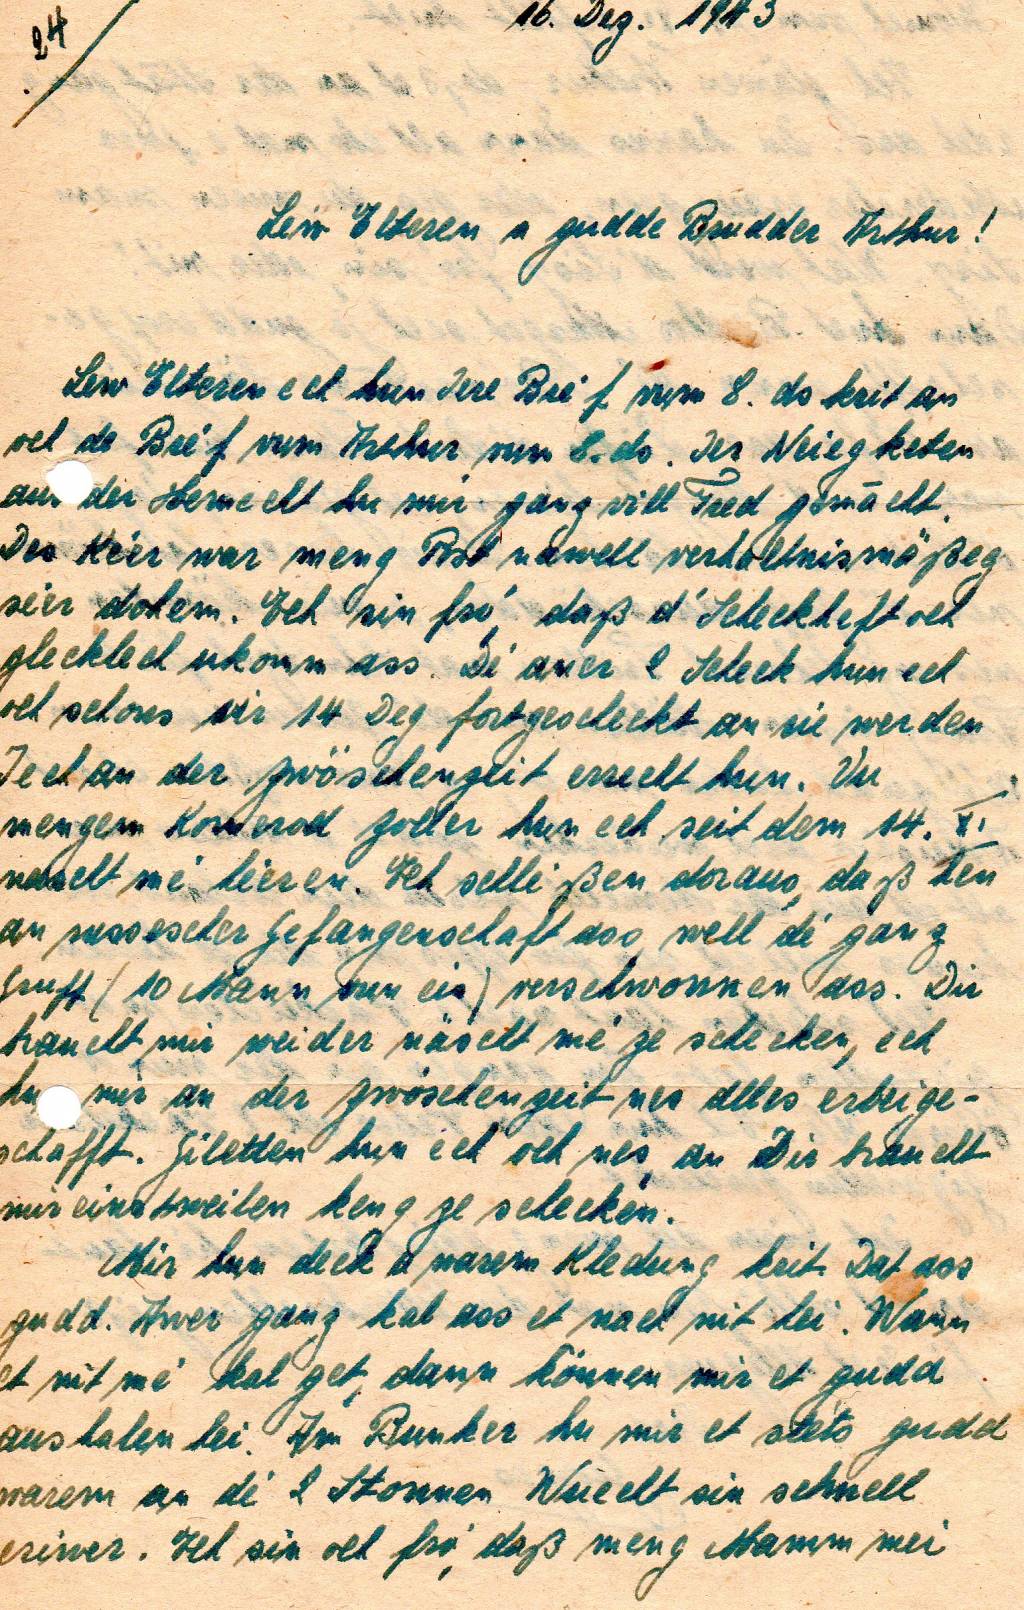 24
16. Dez. 1943
Lew Elteren a gudde Brudder Arthur!
Lew Elteren ech hun Iere Bréf vum 8. ds krit an
och de Bréf vum Arthur vum 8. ds. Der Neiegketen
aus der Hemecht hu mir ganz vill Fred gemächt.
Des Kéer war meng Post nawell verhältnismäßeg
séier dohem. Ech sin fró, daß d'Scheckheft och
glecklech ukomm ass. Dé aner 2 Scheck hun ech
och schons vir 14 Deg fortgescheckt an sie werden
Iech an der Zwöschenzeit errecht hun. Vu
mengem Komerod Zoller hun ech seit dem 14. XI.
näscht mé héieren. Ech schléißen doraus, daß hen
an russescher Gefangenschaft ass, well dé ganz
Grupp (10 Mann vun ein) verschwonnen ass. Dir
braucht mir weider näscht mé ze schecken, ech
hu mir an der Zwöschenzeit nes alles erbeige-
schafft. Giletten hun ech och nes, an Dir braucht
mir einstweilen keng ze schecken.
Mir hun deck a warem Kledung krit. Dat ass
gudd. Awer ganz kal ass et nach nit hei. Wann
et nit mé kal get, dann können mir et gudd
aushalen hei. Am Bunker hu mir et stets gudd
warem an dé 2 Stonnen Wuecht sin schnell
eriwer. Ech sin och fró, daß meng Mamm mei